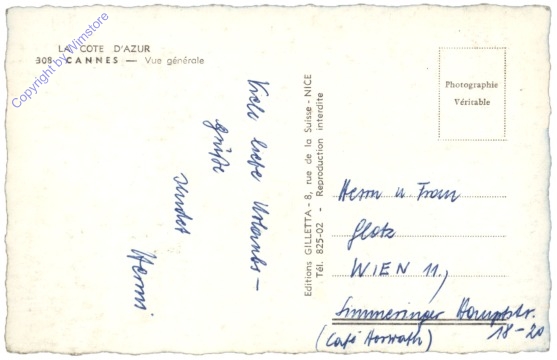 LA COTE D'AZUR
308 - CANNES — Vue générale
Copyright by Wimstore
Viele liebe Urlaubs-
grüße
sendet
Hermi
Editions GILLETTA - 8, rue de la Suisse - NICE
Tél. 825-02 - Reproduction interdite
Photographie
Véritable
Herrn u Frau
Glotz
WIEN 11.,
Simmeringer Hauptstr.
18-20
(Café Horvath)